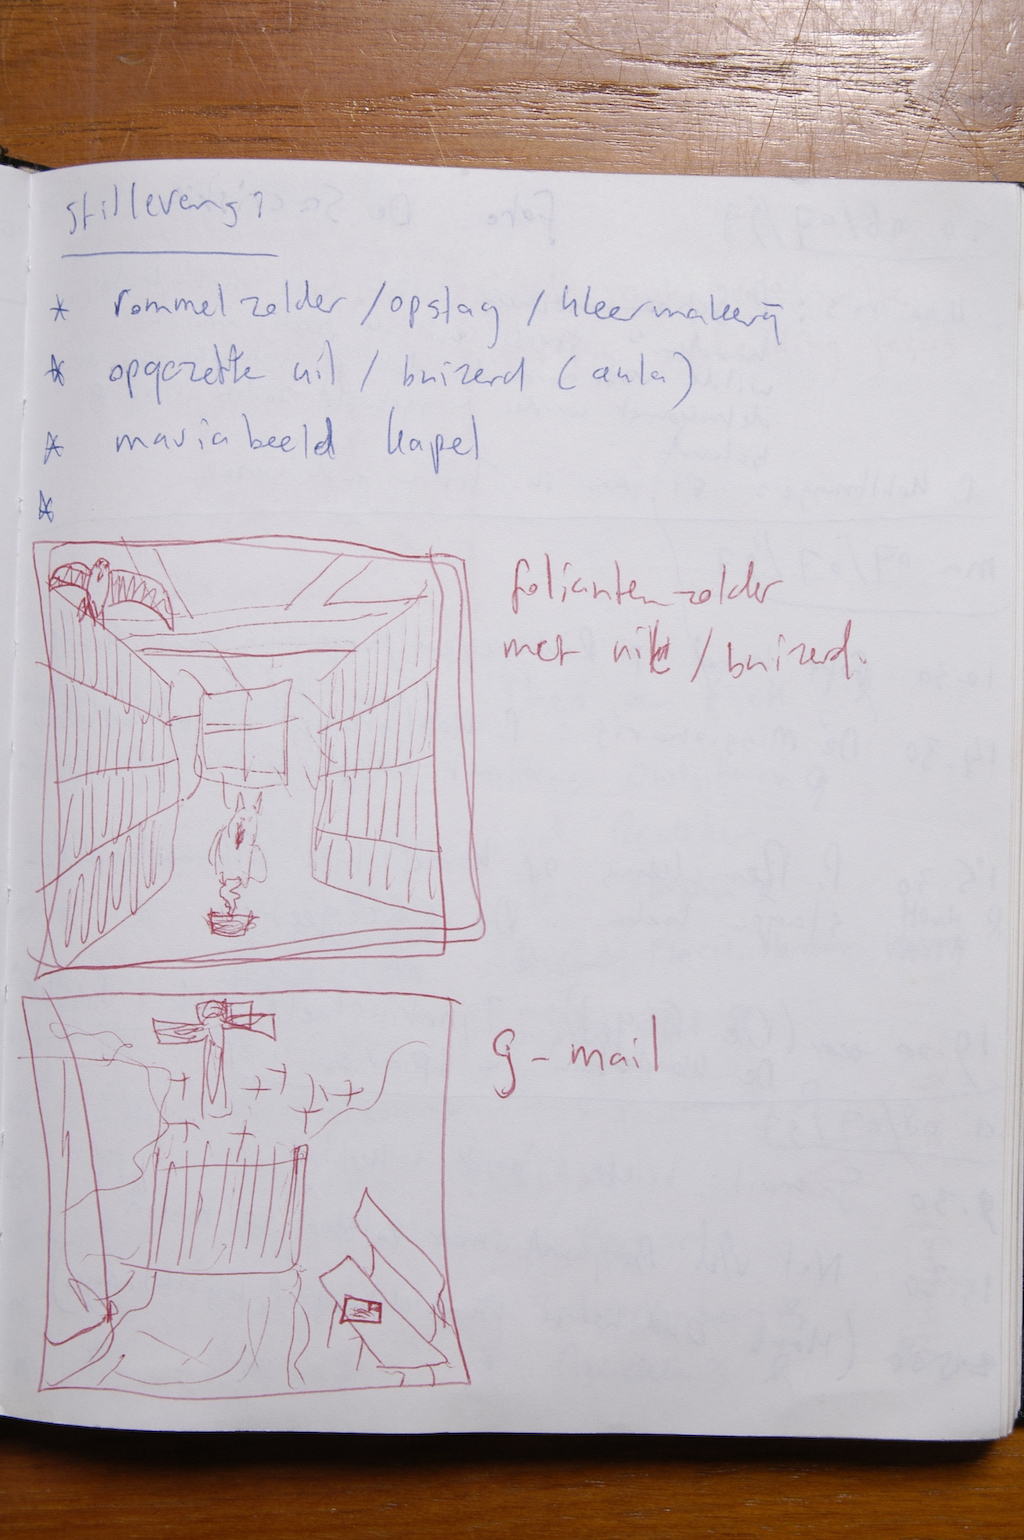 stillevens?
* rommelzolder / opslag / kleermakerij
* opgezette uil / buizerd (aula)
* mariabeeld kapel
*
foliantenzolder
met uil / buizerd.
g-mail